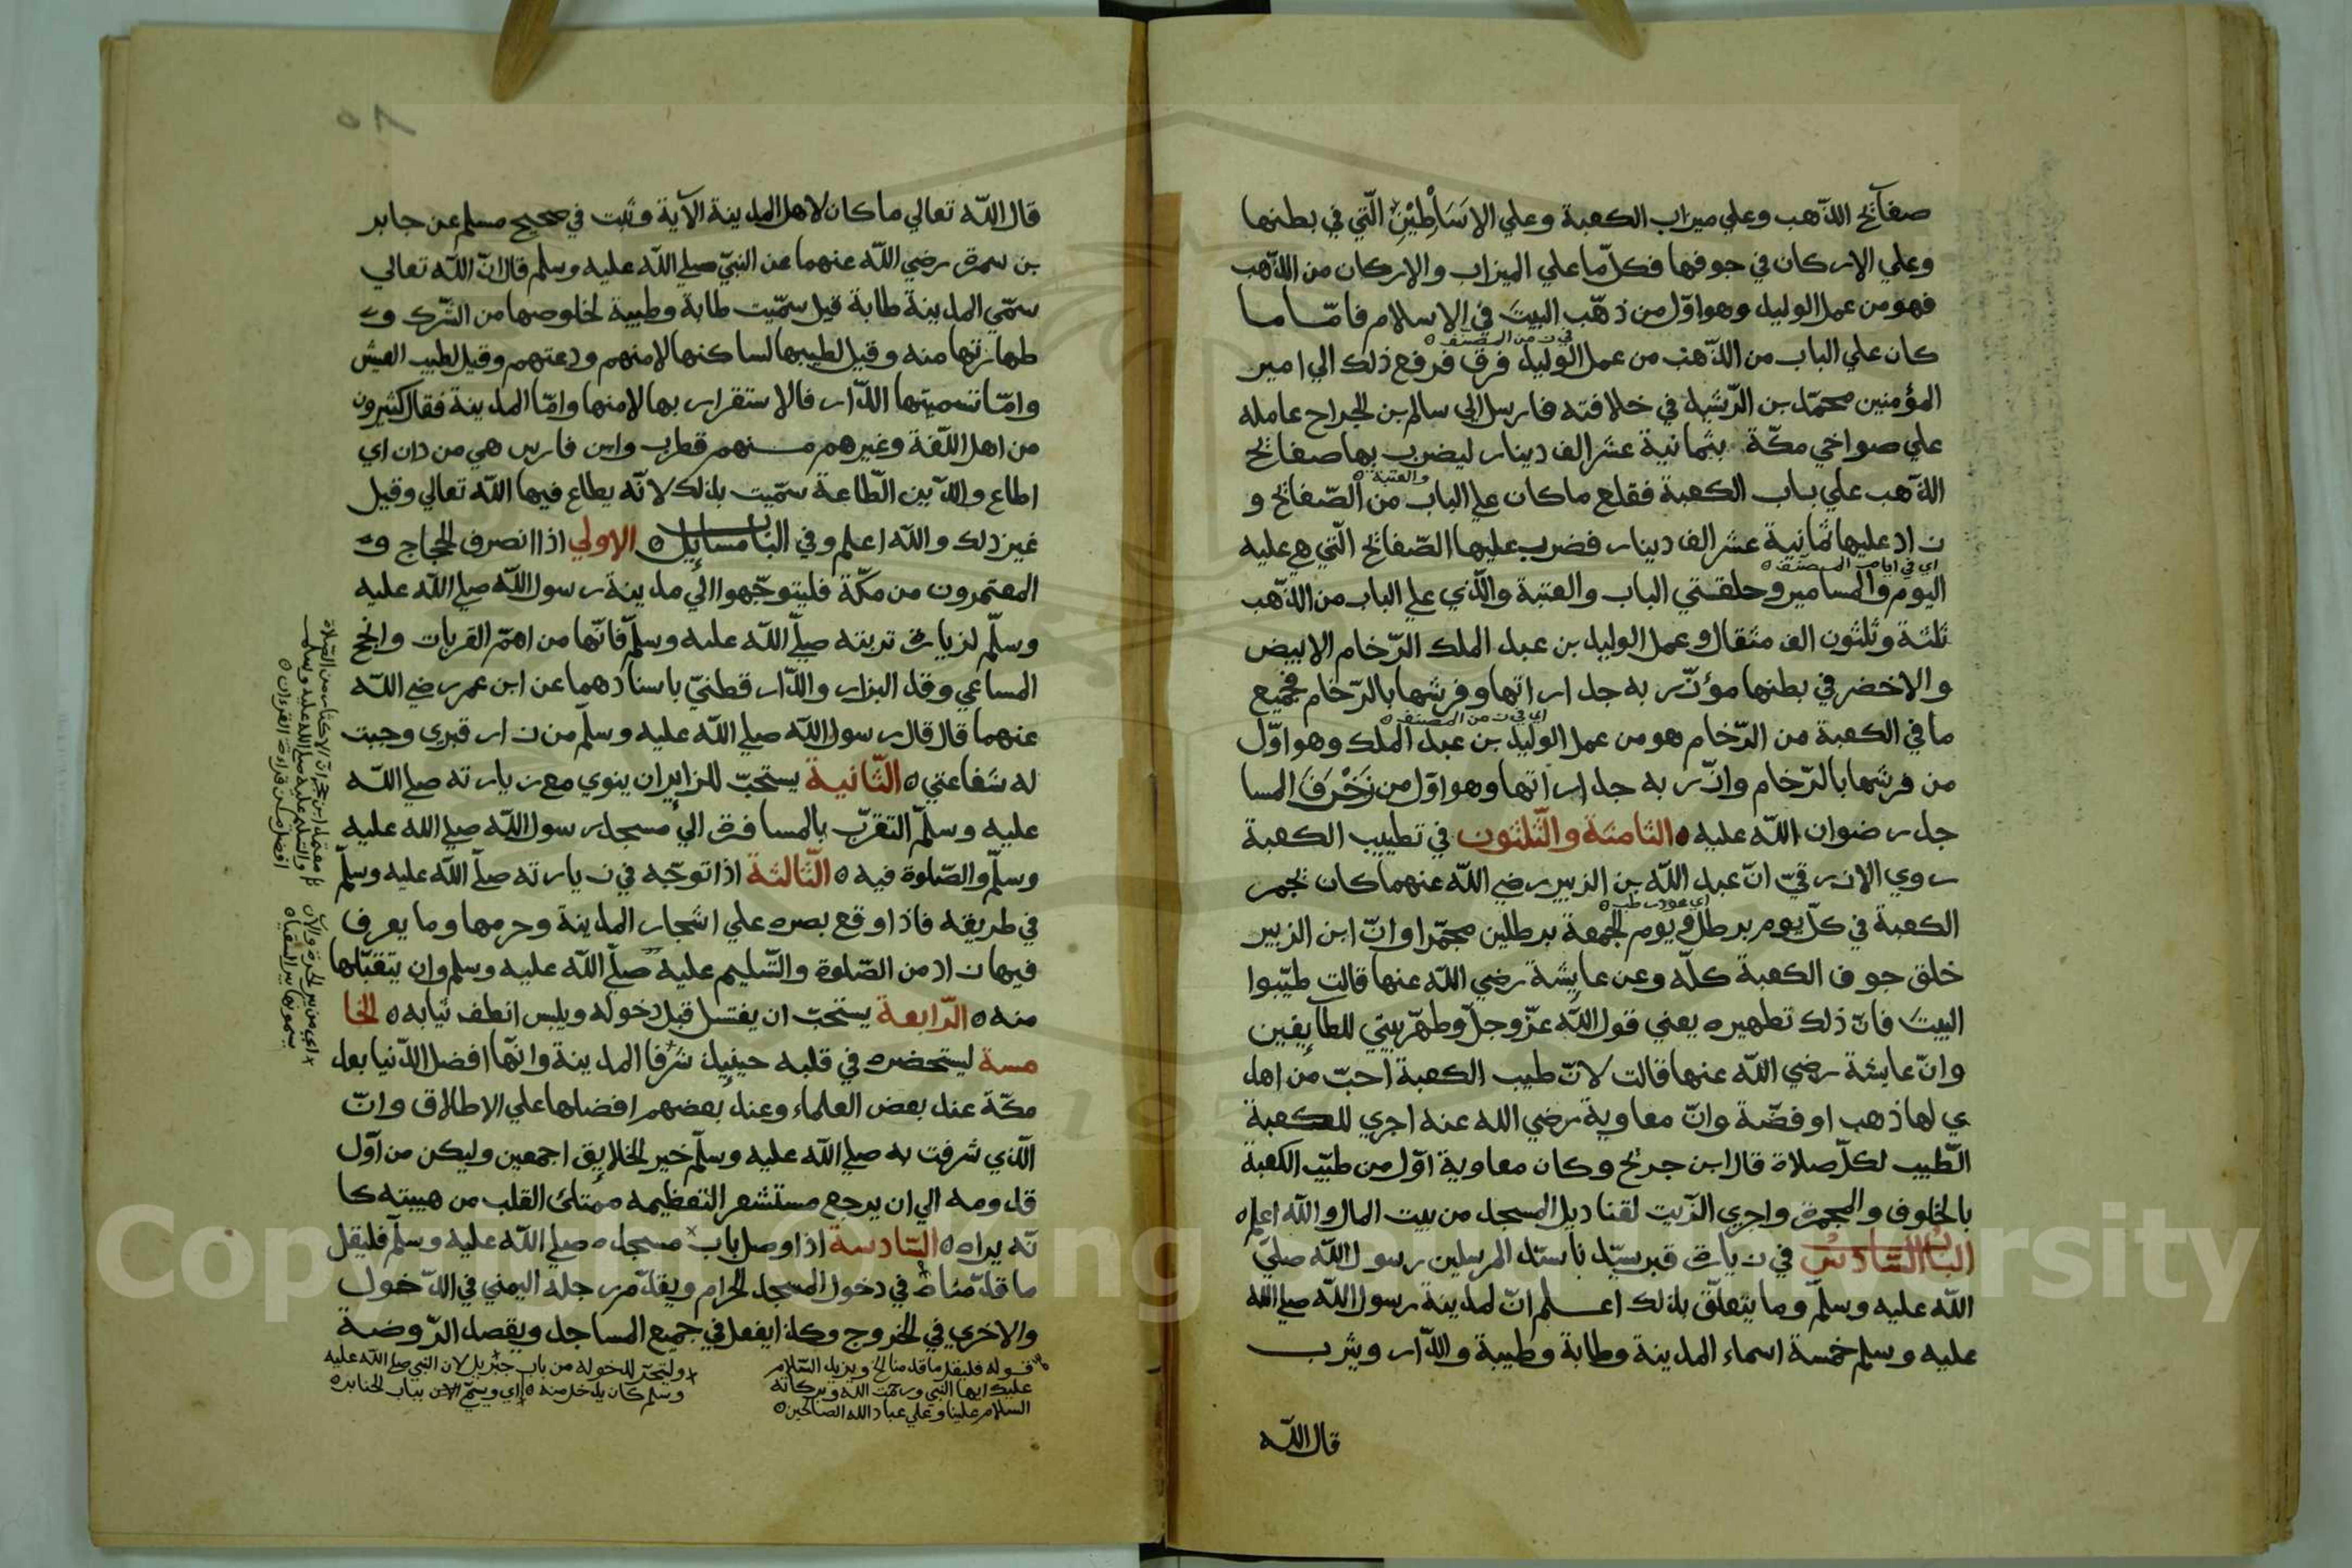 صفآئح الذّهب وعلي ميزاب الكعبة وعلي الاسَاطِيْنِ الّتي في بطنها
وعلي الاركان في جوفها فكلّ ما علي الميزاب والاركان من الذّهب
فهو من عمل الوليد وهو اوّل من ذهّب البيتَ في الاسلام فامّا ما
في زمن المصنف ه
كان علي الباب من الذّهب من عمل الوليد فرق فرفع ذلك الي امير
المؤمنين محمّد بن الرّشيد في خلافته فارسل الي سالم بن الجراح عامله
علي صواخي مكّة بثمانية عشر الف دينار ليضرب بها صفائح
والعتبة ه
الذّهب علي باب الكعبة فقلع ما كان علي الباب من الصّفائح و
زاد عليها ثمانية عشر الف دينار فضرب عليها الصّفائح الّتي هي عليه
اي في ايام المصنف ه
اليوم والمسامير وحلقتي الباب والعتبة والّذي علي الباب من الذّهب
ثلثة وثلثون الف مثقال وعمل الوليد بن عبد الملك الرّخام الابيض
والاخضر في بطنها مؤزّر به جداراتها وفرشها بالرّخام فجميع
اي في زمن المصنف ه
ما في الكعبة من الرّخام هو من عمل الوليد بن عبد الملك وهو اوّل
من فرشها بالرّخام وازّر به جداراتها وهو اوّل من زَخْرَفَ المسا
جد رضوان اللّه عليه ه الثامنة والثّلثون في تطييب الكعبة
روي الازرقيّ انّ عبد اللّه بن الزبير رضي اللّه عنهما كان يجمر
اي عود رطب ه
الكعبة في كلّ يوم برطل ويوم الجمعة برطلين مجمّرا وانّ ابن الزبير
خلق جوف الكعبة كلّه وعن عايشة رضي اللّه عنها قالت طيّبوا
البيتَ فانّ ذلك تطهيره يعني قول اللّه عزّ وجلّ وطهّر بيتي للطآيفين
وانّ عايشة رضي اللّه عنها قالت لانّ طيب الكعبة احبّ من اهد
ي لها ذهب او فضّة وانّ معاوية رضي الله عنه اجري للكعبة
الطّيب لكلّ صلاة قال ابن جريج وكان معاوية اوّل من طيّب الكعبة
بالخلوف والمجمرة واجري الزّيت لقناديل المسجد من بيت المال واللّه اعلم ه
الباب السّادس في زيارة قبر سيّدنا سيّد المرسلين رسول اللّه صلّي
اللّه عليه وسلّم وما يتعلّق بذلك اعلم انّ لمدينة رسول اللّه صلي الله
عليه وسلم خمسة اسماء المدينة وطابة وطيبة والدّار ويثرب
قال اللّه
قال اللّه تعالي ما كان لاهل المدينة الآية وثبت في صحيح مسلم عن جابر
بن سمرة رضي اللّه عنهما عن النبيّ صلي اللّه عليه وسلم قال انّ اللّه تعالي
سمّي المدينة طابة قيل سمّيت طابة وطيبة لخلوصها من الشّرك و
طهارتها منه وقيل لطيبها لساكنها لامنهم ودعتهم وقيل لطيب العيش
وامّا تسميتها الدّار فالاستقرار بها لامنها وامّا المدينة فقال كثيرون
من اهل اللّغة وغيرهم منهم قطرب وابن فارس هي من دان اي
اطاع والدّين الطّاعة سمّيت بذلك لانّه يطاع فيها اللّه تعالي وقيل
غير ذلك واللّه اعلم وفي الباب مسايل ه الاولي اذا انصرف الحجاج و
المعتمرون من مكّة فليتوجّهوا الي مدينة رسول اللّه صلي اللّه عليه
وسلّم لزيارة تربته صلّي اللّه عليه وسلّم فانّها من اهمّ القربات وانجح
المساعي وقد البزار والدّار قطنيّ باسنادهما عن ابن عمر رضي اللّه
عنهما قال قال رسول اللّه صلي اللّه عليه وسلّم من زار قبري وجبت
له شفاعتي ه الثّانية يستحبّ للزاير ان ينوي مع زيارته صلي اللّه
عليه وسلّم التقرّب بالمسافرة الي مسجد رسول اللّه صلي الله عليه
وسلّم والصّلوة فيه ه الثّالثة اذا توجّه في زيارته صلّي اللّه عليه وسلّم
في طريقه فاذا وقع بصره علي اشجار المدينة وحرمها وما يعرف
فيها زاد من الصّلوة والتّسليم عليه صلّي اللّه عليه وسلم وان يتقبّلها
منه ه الرّابعة يستحبّ ان يغتسل قبل دخوله ويلبس انظف ثيابه ه الخا
مسة ليستحضره في قلبه حينيذ شرفا المدينة وانّها افضل الدّنيا بعد
مكّة عند بعض العلماء وعند بعضهم افضلها علي الاطلاق وانّ
الّذي شرفت به صلي اللّه عليه وسلّم خير الخلايق اجمعين وليكن من اوّل
قدومه الي ان يرجع مستشعر التعظيمه ممتلئ القلب من هيبته كا
نّه يراه ه السّادسة اذا وصل باب مسجده صلي اللّه عليه وسلّم فليقل
ما قدّمناه في دخول المسجد الحرام ويقدّم رجله اليمني في الدّخول
والاخري في الخروج وكذا يفعل في جميع المساجد ويقصد الرّوضة
قوله فليقل ما قدمنا الخ ويزيد السّلام
عليك ايها النبي ورحمت الله وبركاته
السلام علينا وعلي عباد الله الصالحين ه
وليتحرّ للدخوله من باب جبريل لان النبي صلي اللّه عليه
وسلم كان يدخل منه ه اي وسمّي الان بباب الجنايز ه
والتسليم عليه صلي اللّه عليه وسلم
افضل من قراءة القرءان ه
اي من بير الحرة والان
يسمونها بير السقيا ه
٨٥
Copyright © King Saud University
1957